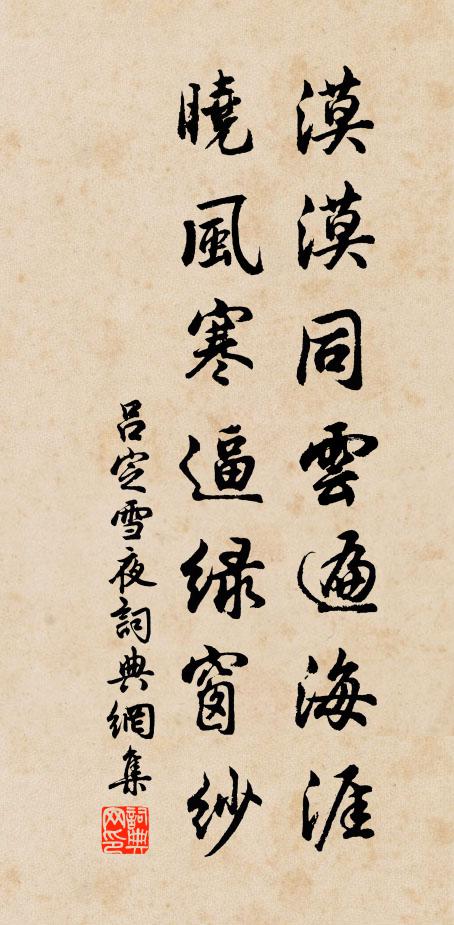 漠漠同雲遍海涯
曉風寒逼綠窗紗
吕定雪夜詞典網集
詞典网印